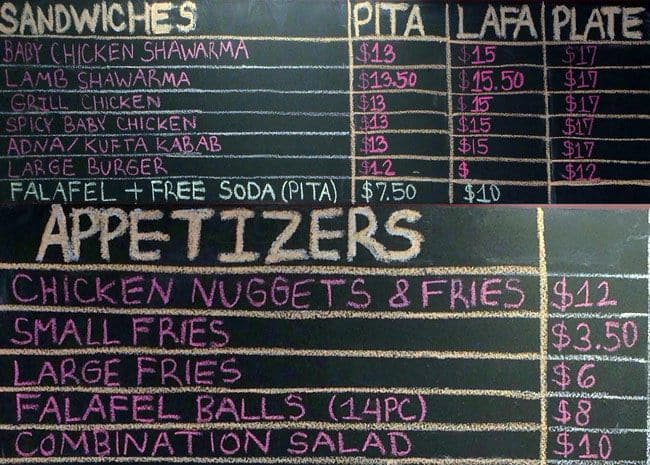 SANDWICHES PITA LAFA PLATE
BABY CHICKEN SHAWARMA $13 $15 $17
LAMB SHAWARMA $13.50 $15.50 $17
GRILL CHICKEN $13 $15 $17
SPICY BABY CHICKEN $13 $15 $17
ADNA/KUFTA KABAB $13 $15 $17
LARGE BURGER $12 $ $12
FALAFEL + FREE SODA (PITA) $7.50 $10
APPETIZERS
CHICKEN NUGGETS & FRIES $12
SMALL FRIES $3.50
LARGE FRIES $6
FALAFEL BALLS (14PC) $8
COMBINATION SALAD $10